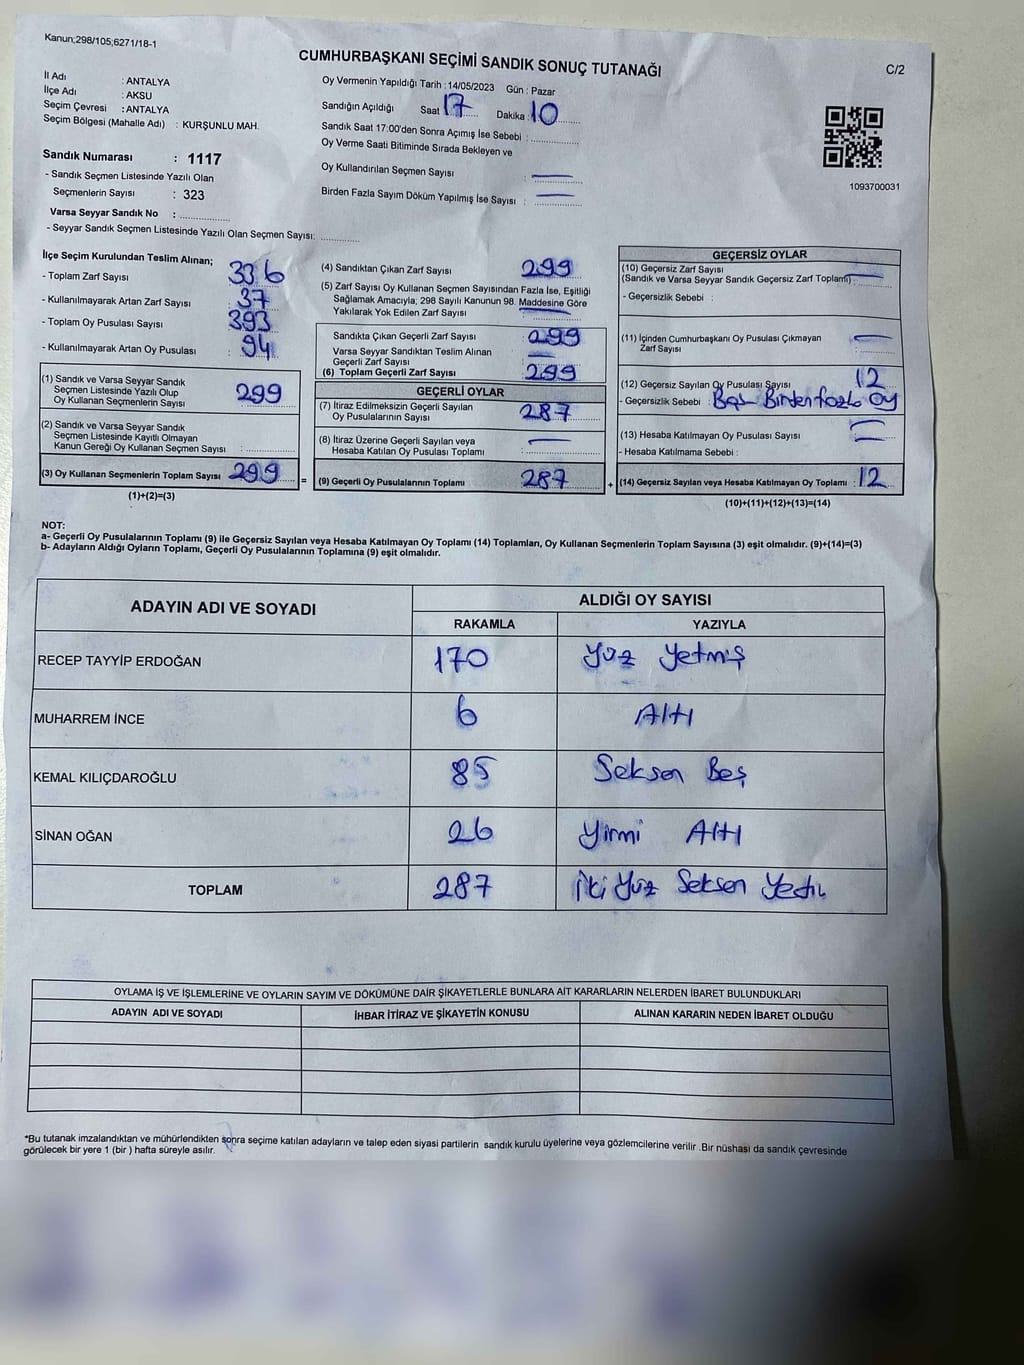 Kanun;298/105;6271/18-1
CUMHURBAŞKANI SEÇİMİ SANDIK SONUÇ TUTANAĞI
C/2
İl Adı : ANTALYA
İlçe Adı : AKSU
Seçim Çevresi : ANTALYA
Seçim Bölgesi (Mahalle Adı) : KURŞUNLU MAH.
Sandık Numarası : 1117
- Sandık Seçmen Listesinde Yazılı Olan
Seçmenlerin Sayısı : 323
Varsa Seyyar Sandık No :
- Seyyar Sandık Seçmen Listesinde Yazılı Olan Seçmen Sayısı:
Oy Vermenin Yapıldığı Tarih : 14/05/2023 Gün : Pazar
Sandığın Açıldığı Saat 17 Dakika : 10
Sandık Saat 17:00'den Sonra Açımış İse Sebebi :
Oy Verme Saati Bitiminde Sırada Bekleyen ve
Oy Kullandırılan Seçmen Sayısı : —
Birden Fazla Sayım Döküm Yapılmış İse Sayısı : —
1093700031
İlçe Seçim Kurulundan Teslim Alınan;
- Toplam Zarf Sayısı : 336
- Kullanılmayarak Artan Zarf Sayısı : 37
- Toplam Oy Pusulası Sayısı : 393
- Kullanılmayarak Artan Oy Pusulası : 94
(1) Sandık ve Varsa Seyyar Sandık
Seçmen Listesinde Yazılı Olup
Oy Kullanan Seçmenlerin Sayısı : 299
(2) Sandık ve Varsa Seyyar Sandık
Seçmen Listesinde Kayıtlı Olmayan
Kanun Gereği Oy Kullanan Seçmen Sayısı :
(3) Oy Kullanan Seçmenlerin Toplam Sayısı 299
(1)+(2)=(3)
=
(4) Sandıktan Çıkan Zarf Sayısı 299
(5) Zarf Sayısı Oy Kullanan Seçmen Sayısından Fazla İse, Eşitliği
Sağlamak Amacıyla; 298 Sayılı Kanunun 98. Maddesine Göre
Yakılarak Yok Edilen Zarf Sayısı : —
Sandıkta Çıkan Geçerli Zarf Sayısı : 299
Varsa Seyyar Sandıktan Teslim Alınan
Geçerli Zarf Sayısı : —
(6) Toplam Geçerli Zarf Sayısı : 299
GEÇERLİ OYLAR
(7) İtiraz Edilmeksizin Geçerli Sayılan
Oy Pusulalarının Sayısı : 287
(8) İtiraz Üzerine Geçerli Sayılan veya
Hesaba Katılan Oy Pusulası Toplamı : —
(9) Geçerli Oy Pusulalarının Toplamı : 287
+
GEÇERSİZ OYLAR
(10) Geçersiz Zarf Sayısı
(Sandık ve Varsa Seyyar Sandık Geçersiz Zarf Toplamı) : —
- Geçersizlik Sebebi :
(11) İçinden Cumhurbaşkanı Oy Pusulası Çıkmayan
Zarf Sayısı : —
(12) Geçersiz Sayılan Oy Pusulası Sayısı 12
- Geçersizlik Sebebi : Boş Birden fazla oy
(13) Hesaba Katılmayan Oy Pusulası Sayısı : —
- Hesaba Katılmama Sebebi : —
(14) Geçersiz Sayılan veya Hesaba Katılmayan Oy Toplamı : 12
(10)+(11)+(12)+(13)=(14)
NOT:
a- Geçerli Oy Pusulalarının Toplamı (9) ile Geçersiz Sayılan veya Hesaba Katılmayan Oy Toplamı (14) Toplamları, Oy Kullanan Seçmenlerin Toplam Sayısına (3) eşit olmalıdır. (9)+(14)=(3)
b- Adayların Aldığı Oyların Toplamı, Geçerli Oy Pusulalarının Toplamına (9) eşit olmalıdır.
ADAYIN ADI VE SOYADI ALDIĞI OY SAYISI
RAKAMLA YAZIYLA
RECEP TAYYİP ERDOĞAN 170 Yüz Yetmiş
MUHARREM İNCE 6 Altı
KEMAL KILIÇDAROĞLU 85 Seksen Beş
SİNAN OĞAN 26 Yirmi Altı
TOPLAM 287 İki Yüz Seksen Yedi
OYLAMA İŞ VE İŞLEMLERİNE VE OYLARIN SAYIM VE DÖKÜMÜNE DAİR ŞİKAYETLERLE BUNLARA AİT KARARLARIN NELERDEN İBARET BULUNDUKLARI
ADAYIN ADI VE SOYADI İHBAR İTİRAZ VE ŞİKAYETİN KONUSU ALINAN KARARIN NEDEN İBARET OLDUĞU
*Bu tutanak imzalandıktan ve mühürlendikten sonra seçime katılan adayların ve talep eden siyasi partilerin sandık kurulu üyelerine veya gözlemcilerine verilir .Bir nüshası da sandık çevresinde
görülecek bir yere 1 (bir ) hafta süreyle asılır.